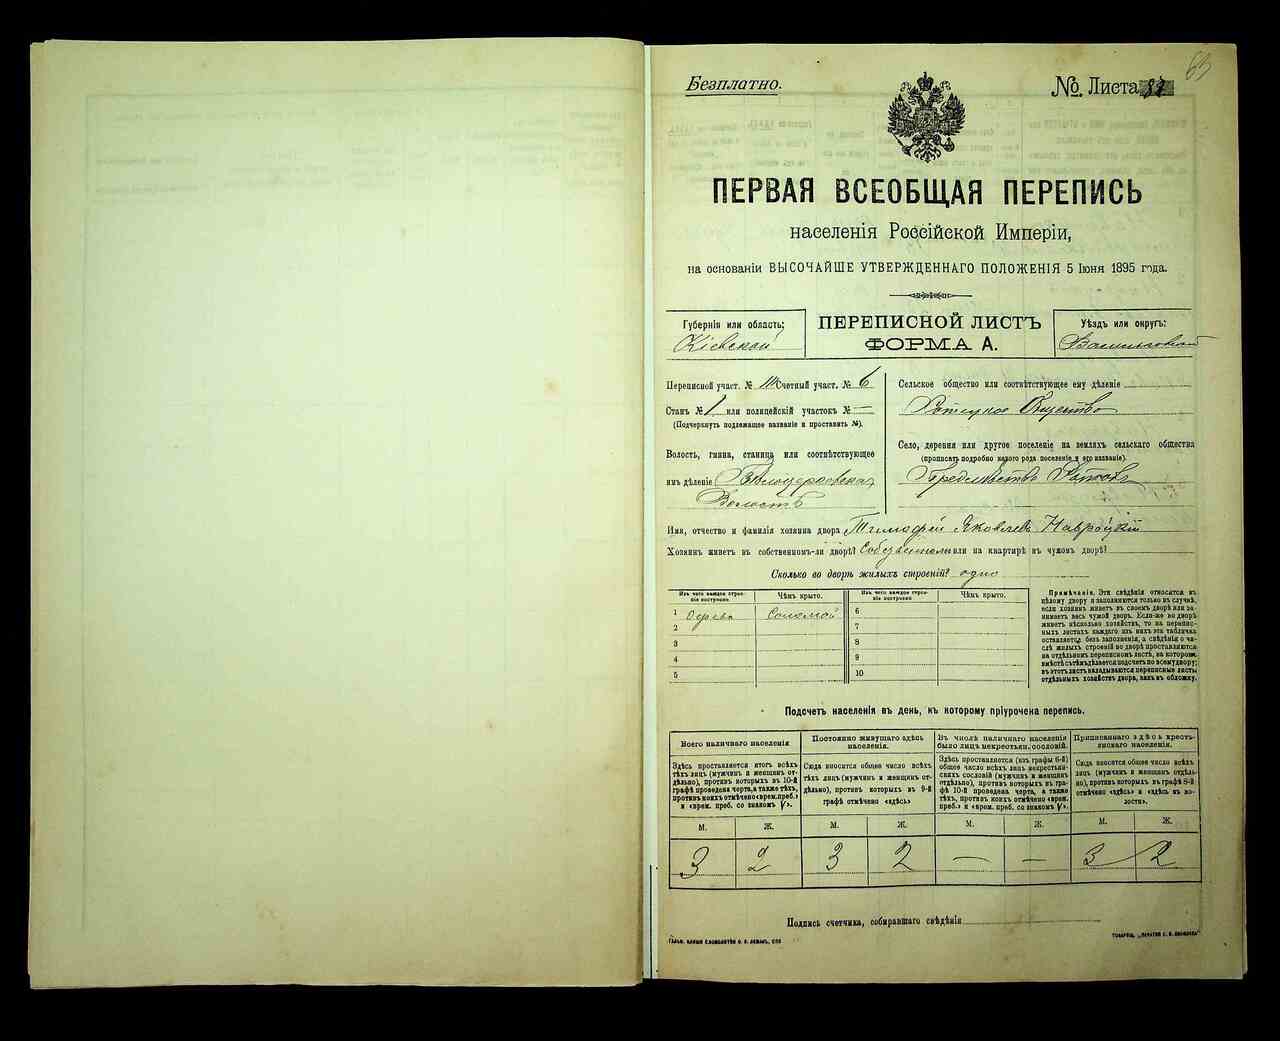 Безплатно.
№ Листа 87
ПЕРВАЯ ВСЕОБЩАЯ ПЕРЕПИСЬ
населенія Россійской Имперіи,
на основаніи ВЫСОЧАЙШЕ УТВЕРЖДЕННАГО ПОЛОЖЕНІЯ 5 Іюня 1895 года.
Губернія или область:
Кіевской
ПЕРЕПИСНОЙ ЛИСТЪ
ФОРМА А.
Уѣздъ или округъ:
Васильковскій
Переписной участ. № III Счетный участ. № 6
Станъ № 1 или полицейскій участокъ № —
(Подчеркнуть подлежащее названіе и проставить №).
Волость, гмина, станица или соотвѣтствующее
имъ дѣленіе Бѣлоцерковская
Волость
Сельское общество или соотвѣтствующее ему дѣленіе
Роткое Общество
Село, деревня или другое поселеніе на земляхъ сельскаго общества
(прописать подробно какого рода поселеніе и его названіе).
Предмѣстье Ротокъ
Имя, отчество и фамилія хозяина двора Тимофей Яковлевъ Навроцкій
Хозяинъ живетъ въ собственномъ-ли дворѣ? или на квартирѣ въ чужом дворѣ?
Сколько во дворѣ жилыхъ строеній? одно
Изъ чего каждое строеніе построено.
Чѣмъ крыто.
Изъ чего каждое строеніе построено.
Чѣмъ крыто.
1 Дерева Соломой
2
3
4
5
6
7
8
9
10
Примѣчаніе. Эти свѣдѣнія относятся къ
цѣлому двору и заполняются только въ случаѣ,
если хозяинъ живетъ въ своемъ дворѣ или занимаетъ
весь чужой дворъ. Если-же во дворѣ
живетъ нѣсколько хозяйствъ, то на переписныхъ
листахъ каждаго изъ нихъ эта табличка
оставляется безъ заполненія, а свѣдѣнія о числѣ
жилыхъ строеній во дворѣ проставляются
на отдѣльномъ переписномъ листѣ, на которомъ
вмѣстѣ съ тѣмъ дѣлается подсчетъ по всему двору;
въ этотъ листъ вкладываются переписные листы
отдѣльныхъ хозяйствъ двора, какъ въ обложку.
Подсчетъ населенія въ день, къ которому пріурочена перепись.
Всего наличнаго населенія
Здѣсь проставляется итогъ всѣхъ
тѣхъ лицъ (мужчинъ и женщинъ отдѣльно),
противъ которыхъ въ 10-й
графѣ проведена черта, а также тѣхъ,
противъ коихъ отмѣчено «врем. преб.»
и «врем. преб. со знакомъ V».
Постоянно живущаго здѣсь
населенія.
Сюда вносится общее число всѣхъ
тѣхъ лицъ (мужчинъ и женщинъ отдѣльно),
противъ которыхъ въ 9-й
графѣ отмѣчено «здѣсь»
Въ числѣ наличнаго населенія
было лицъ некрестьян. сословій.
Здѣсь проставляется (изъ графы 6-й)
общее число всѣхъ лицъ некрестьянскихъ
сословій (мужчинъ и женщинъ
отдѣльно), противъ которыхъ въ графѣ
10-й проведена черта, а также
тѣхъ, противъ коихъ отмѣчено «врем.
преб.» и «врем. преб. со знакомъ V».
Приписаннаго здѣсь крестьянскаго
населенія.
Сюда вносится общее число всѣхъ
лицъ (мужчинъ и женщинъ отдѣльно),
противъ которыхъ въ графѣ 8-й
отмѣчено «здѣсь» и «здѣсь въ волости».
М. Ж. М. Ж. М. Ж. М. Ж.
3 2 3 2 — — 3 2
Подпись счетчика, собиравшаго свѣдѣнія